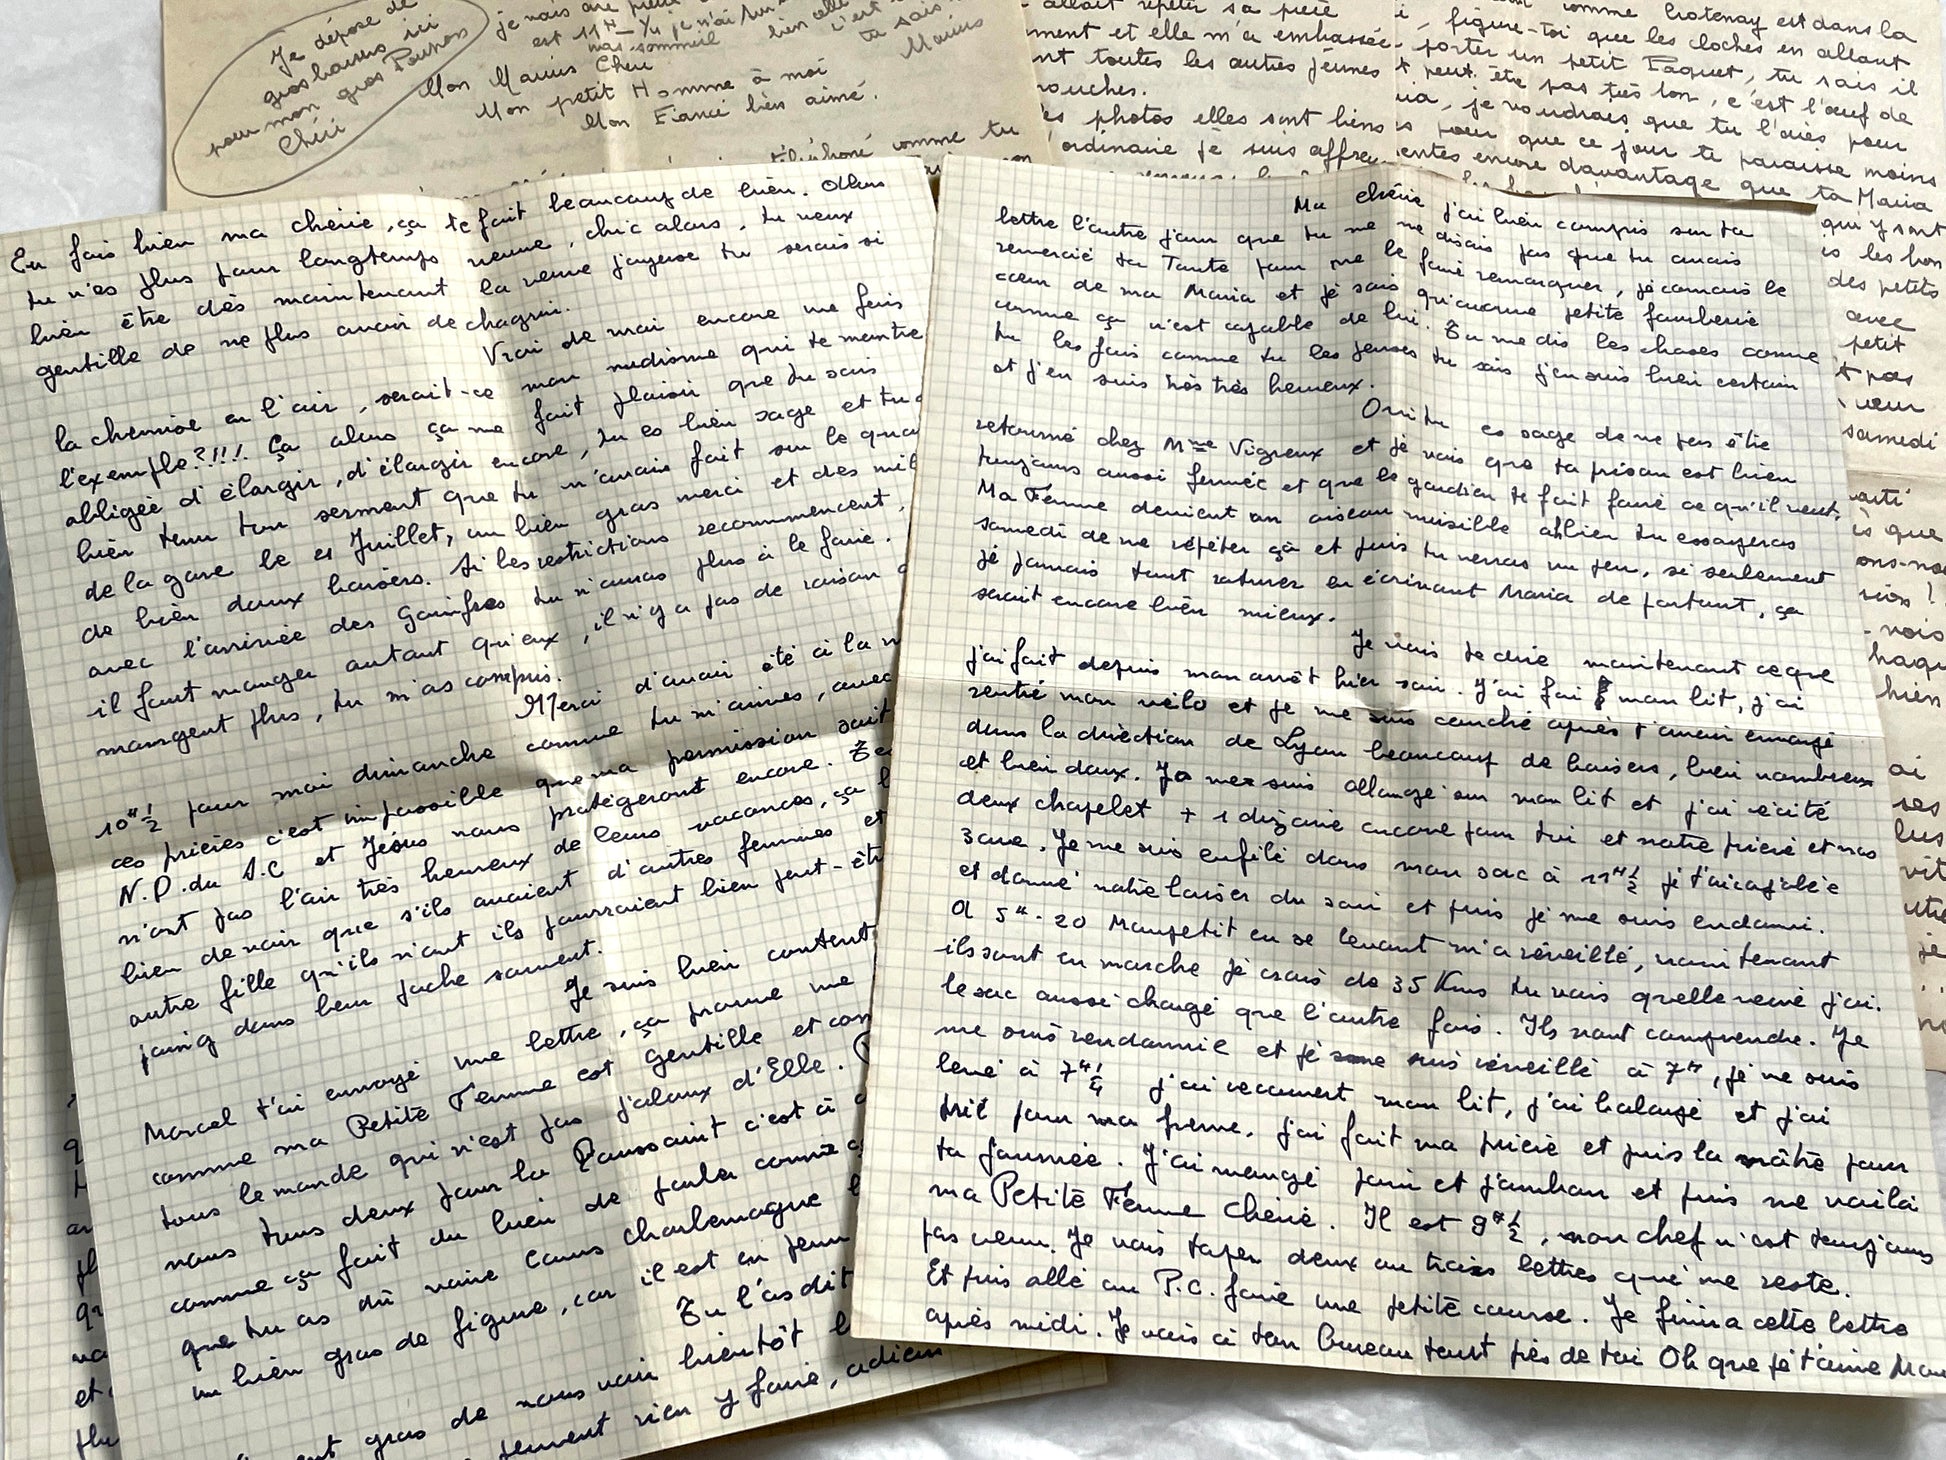 Je dépose de
gros baisers ici
pour mon gros Poupon
Chéri
je vais
est 11H
pas sommeil
bien elle
c'est
tu sais
Marius
Mon Marius Chéri
Mon petit Homme à moi
Mon Fiancé bien aimé.
téléphoné comme tu
allait répéter sa pièce
ment et elle m'a embrassée
nt toutes les autres jeunes
ouches.
es photos elles sont bien
ordinaire je suis affreu
comme Chatenay est dans la
i, figure-toi que les cloches en allant
porter un petit Paquet, tu sais il
t peut être pas très bon, c'est l'œuf de
ua, je voudrais que tu l'aies pour
s pour que ce jour te paraisse moins
entes encore davantage que ta Maria
qui y sont
is les bon
des petits
avec
petit
t pas
cœur
samedi
parti
is que
ons-nou
sion ?
vois
haqu
bien
ai
ses
lus
vit
je
Tu fais bien ma chérie, ça te fait beaucoup de bien. Alors
tu n'es plus pour longtemps veuve, chic alors, tu veux
bien être dès maintenant la veuve joyeuse tu serais si
gentille de ne plus avoir de chagrin.
Vrai de vrai encore une fois
la chemise en l'air, serait-ce mon nudisme qui te montre
l'exemple?!!!. Ça alors ça me fait plaisir que tu sois
obligée d'élargir, d'élargir encore, tu es bien sage et tu
bien tenu ton serment que tu m'avais fait sur le quai
de la gare le 21 Juillet, un bien gros merci et des mil
de bien doux baisers. Si les restrictions recommencent,
avec l'arrivée des Goinfres tu n'auras plus à le faire.
il faut manger autant qu'eux, il n'y a pas de raison
mangent plus, tu m'as compris.
Merci d'avoir été à la
10H ½ pour moi dimanche comme tu m'aimes, avec
ces prières c'est impossible que ma permission soit
N.D. du S.C et Jésus nous protégeront encore.
n'ont pas l'air très heureux de leurs vacances, ça
bien de voir que s'ils avaient d'autres femmes et
autre fille qu'ils n'ont ils pourraient bien peut-êtr
poing dans leur poche souvent.
Je suis bien content
Marcel t'ai envoyé une lettre, ça prouve une
comme ma Petite Femme est gentille et com
tous le monde qui n'est pas jaloux d'Elle.
nous tous deux pour la Toussaint c'est à
comme ça fait du bien de parler comme
que tu as dû voire Cours Charlemagne
un bien gros de figure, car il est en
Tu l'as dit
gros de nous voir bientôt
peuvent rien y faire, adieu
Ma chérie j'ai bien compris sur ta
lettre l'autre jour que tu me ne disais pas que tu avais
remercié ta Tante pour me le faire remarquer, je connais le
cœur de ma Maria et je sais qu'aucune petite fourberie
comme ça n'est capable de lui. Tu me dis les choses comme
tu les fais comme tu les penses tu sais j'en suis bien certain
et j'en suis très très heureux.
Oui tu es sage de ne pas être
retourné chez Mme Vigreux et je vois que ta prison est bien
toujours aussi fermée et que le gardien te fait faire ce qu'il veut.
Ma Femme devient un oiseau nuisible ah bien tu essayeras
samedi de me répéter çà et puis tu verras un peu, si seulement
je pouvais tout raturer en écrivant Maria de partout, ça
serait encore bien mieux.
Je vais te dire maintenant ce que
j'ai fait depuis mon arrêt hier soir. J'ai fai mon lit, j'ai
rentré mon vélo et je me suis couché après t'avoir envoyé
dans la direction de Lyon beaucoup de baisers, bien nombreux
et bien doux. Je me suis allongé sur mon lit et j'ai récité
deux chapelet + 1 dizaine encore pour toi et notre prière et nos
3 ave. Je me suis enfilé dans mon sac à 11H ½ je t'ai cajolée
et donné notre baiser du soir et puis je me suis endormi.
A 5H-20 Maupetit en se levant m'a réveillé, maintenant
ils sont en marche je crois de 35 Kms tu vois quelle veine j'ai.
le sac aussi chargé que l'autre fois. Ils vont comprendre. Je
me suis rendormie et je suis réveillé à 7H, je me suis
levé à 7H ¼ j'ai recouvert mon lit, j'ai balayé et j'ai
prié pour ma femme. j'ai fait ma prière et puis la nôtre pour
ta journée. J'ai mangé pain et jambon et puis me voilà
ma Petite Femme Chérie. Il est 9H ½, mon chef n'est toujours
pas venu. Je vais taper deux ou trois lettres qui me reste.
Et puis allé au P.C. faire une petite course. Je finira cette lettre
après midi. Je vais à ton Bureau tout près de toi Oh que je t'aime